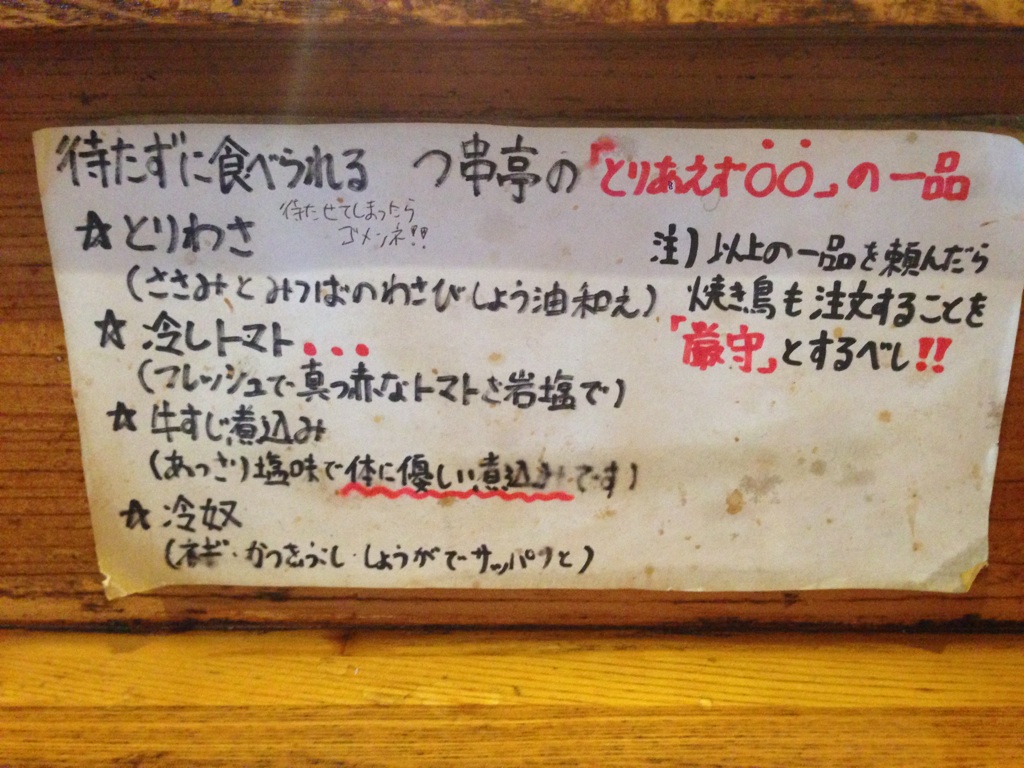 待たずに食べられる つ串亭の「とりあえず〇〇」の一品
待たせてしまったら
ゴメンネ!!
☆とりわさ
(ささみとみつばのわさびしょう油和え)
☆冷しトマト...
(フレッシュで真っ赤なトマトを岩塩で)
☆牛すじ煮込み
(あっさり塩味で体に優しい煮込みです)
☆冷奴
(ネギ・かつおぶし・しょうがでサッパリと)
注)以上の一品を頼んだら
焼き鳥も注文することを
「厳守」とするべし!!